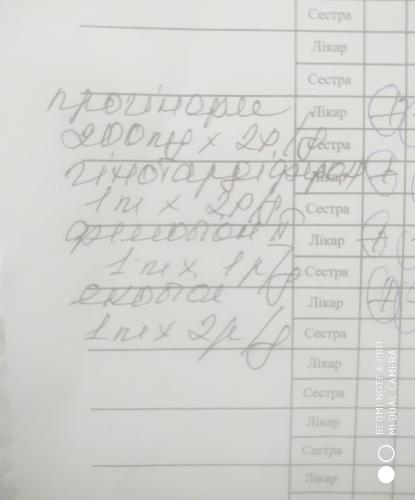 Сестра
Лікар
Сестра
прогінорм Лікар
200 mg x 2р/д Сестра
гінотардіферон Лікар
1 т x 2р/д Сестра
Лікар
1 т x 1р/д Сестра
Лікар
1 т x 2р/д Сестра
Лікар
Сестра
Лікар
Сестра
Лікар
REDMI NOTE 6 PRO
MI DUAL CAMERA